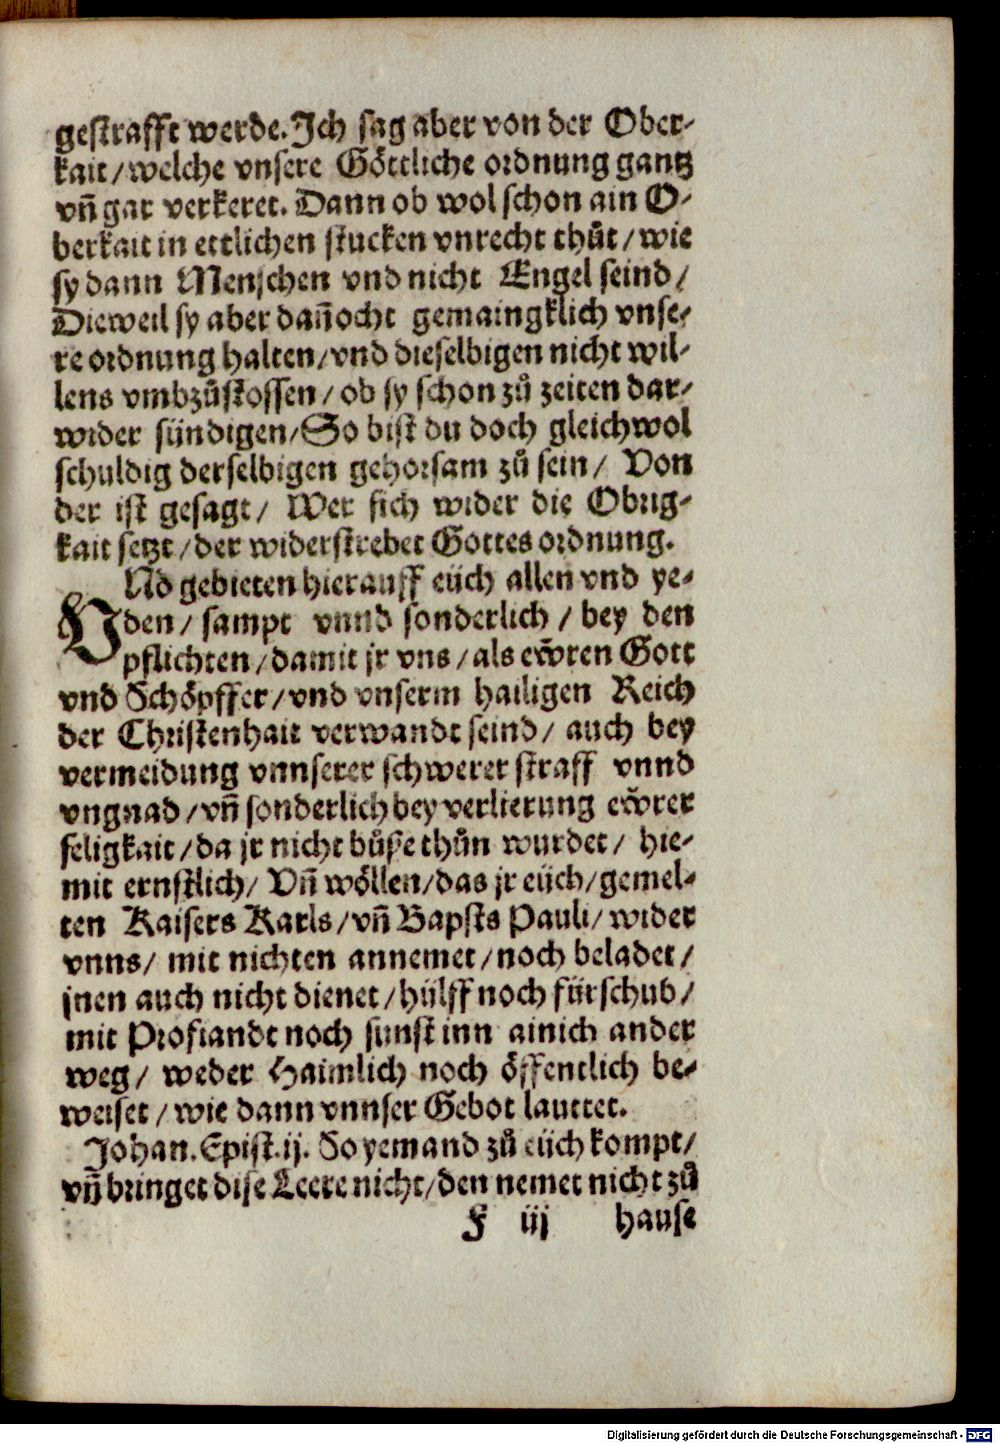 gestrafft werde. Ich sag aber von der Ober-
kait / welche vnsere Göttliche ordnung gantz
vñ gar verkeret. Dann ob wol schon ain O-
berkait in ettlichen stucken vnrecht thůt / wie
sy dann Menschen vnd nicht Engel seind /
Dieweil sy aber dañocht gemaingklich vnse-
re ordnung halten / vnd dieselbigen nicht wil-
lens vmbzůstossen / ob sy schon zů zeiten dar-
wider sündigen / So bist du doch gleichwol
schuldig derselbigen gehorsam zů sein / Von
der ist gesagt / Wer sich wider die Obrig-
kait setzt / der widerstrebet Gottes ordnung.
VNd gebieten hierauff eüch allen vnd ye-
den / sampt vnnd sonderlich / bey den
pflichten / damit jr vns / als ew̃ren Gott
vnd Schöpffer / vnd vnserm hailigen Reich
der Christenhait verwandt seind / auch bey
vermeidung vnnserer schwerer straff vnnd
vngnad / vñ sonderlich bey verlierung ew̃rer
seligkait / da jr nicht bůße thůn wurdet / hie-
mit ernstlich / Vñ wöllen / das jr eüch / gemel-
ten Kaisers Karls / vñ Bapsts Pauli / wider
vnns / mit nichten annemet / noch beladet /
jnen auch nicht dienet / hülff noch fürschub /
mit Profiandt noch sunst inn ainich ander
weg / weder Haimlich noch öffentlich be-
weiset / wie dann vnnser Gebot lauttet.
Johan. Epist. ij. So yemand zů eüch kompt /
vñ bringet dise Leere nicht / den nemet nicht zů
F iij hause
Digitalisierung gefördert durch die Deutsche Forschungsgemeinschaft - DFG